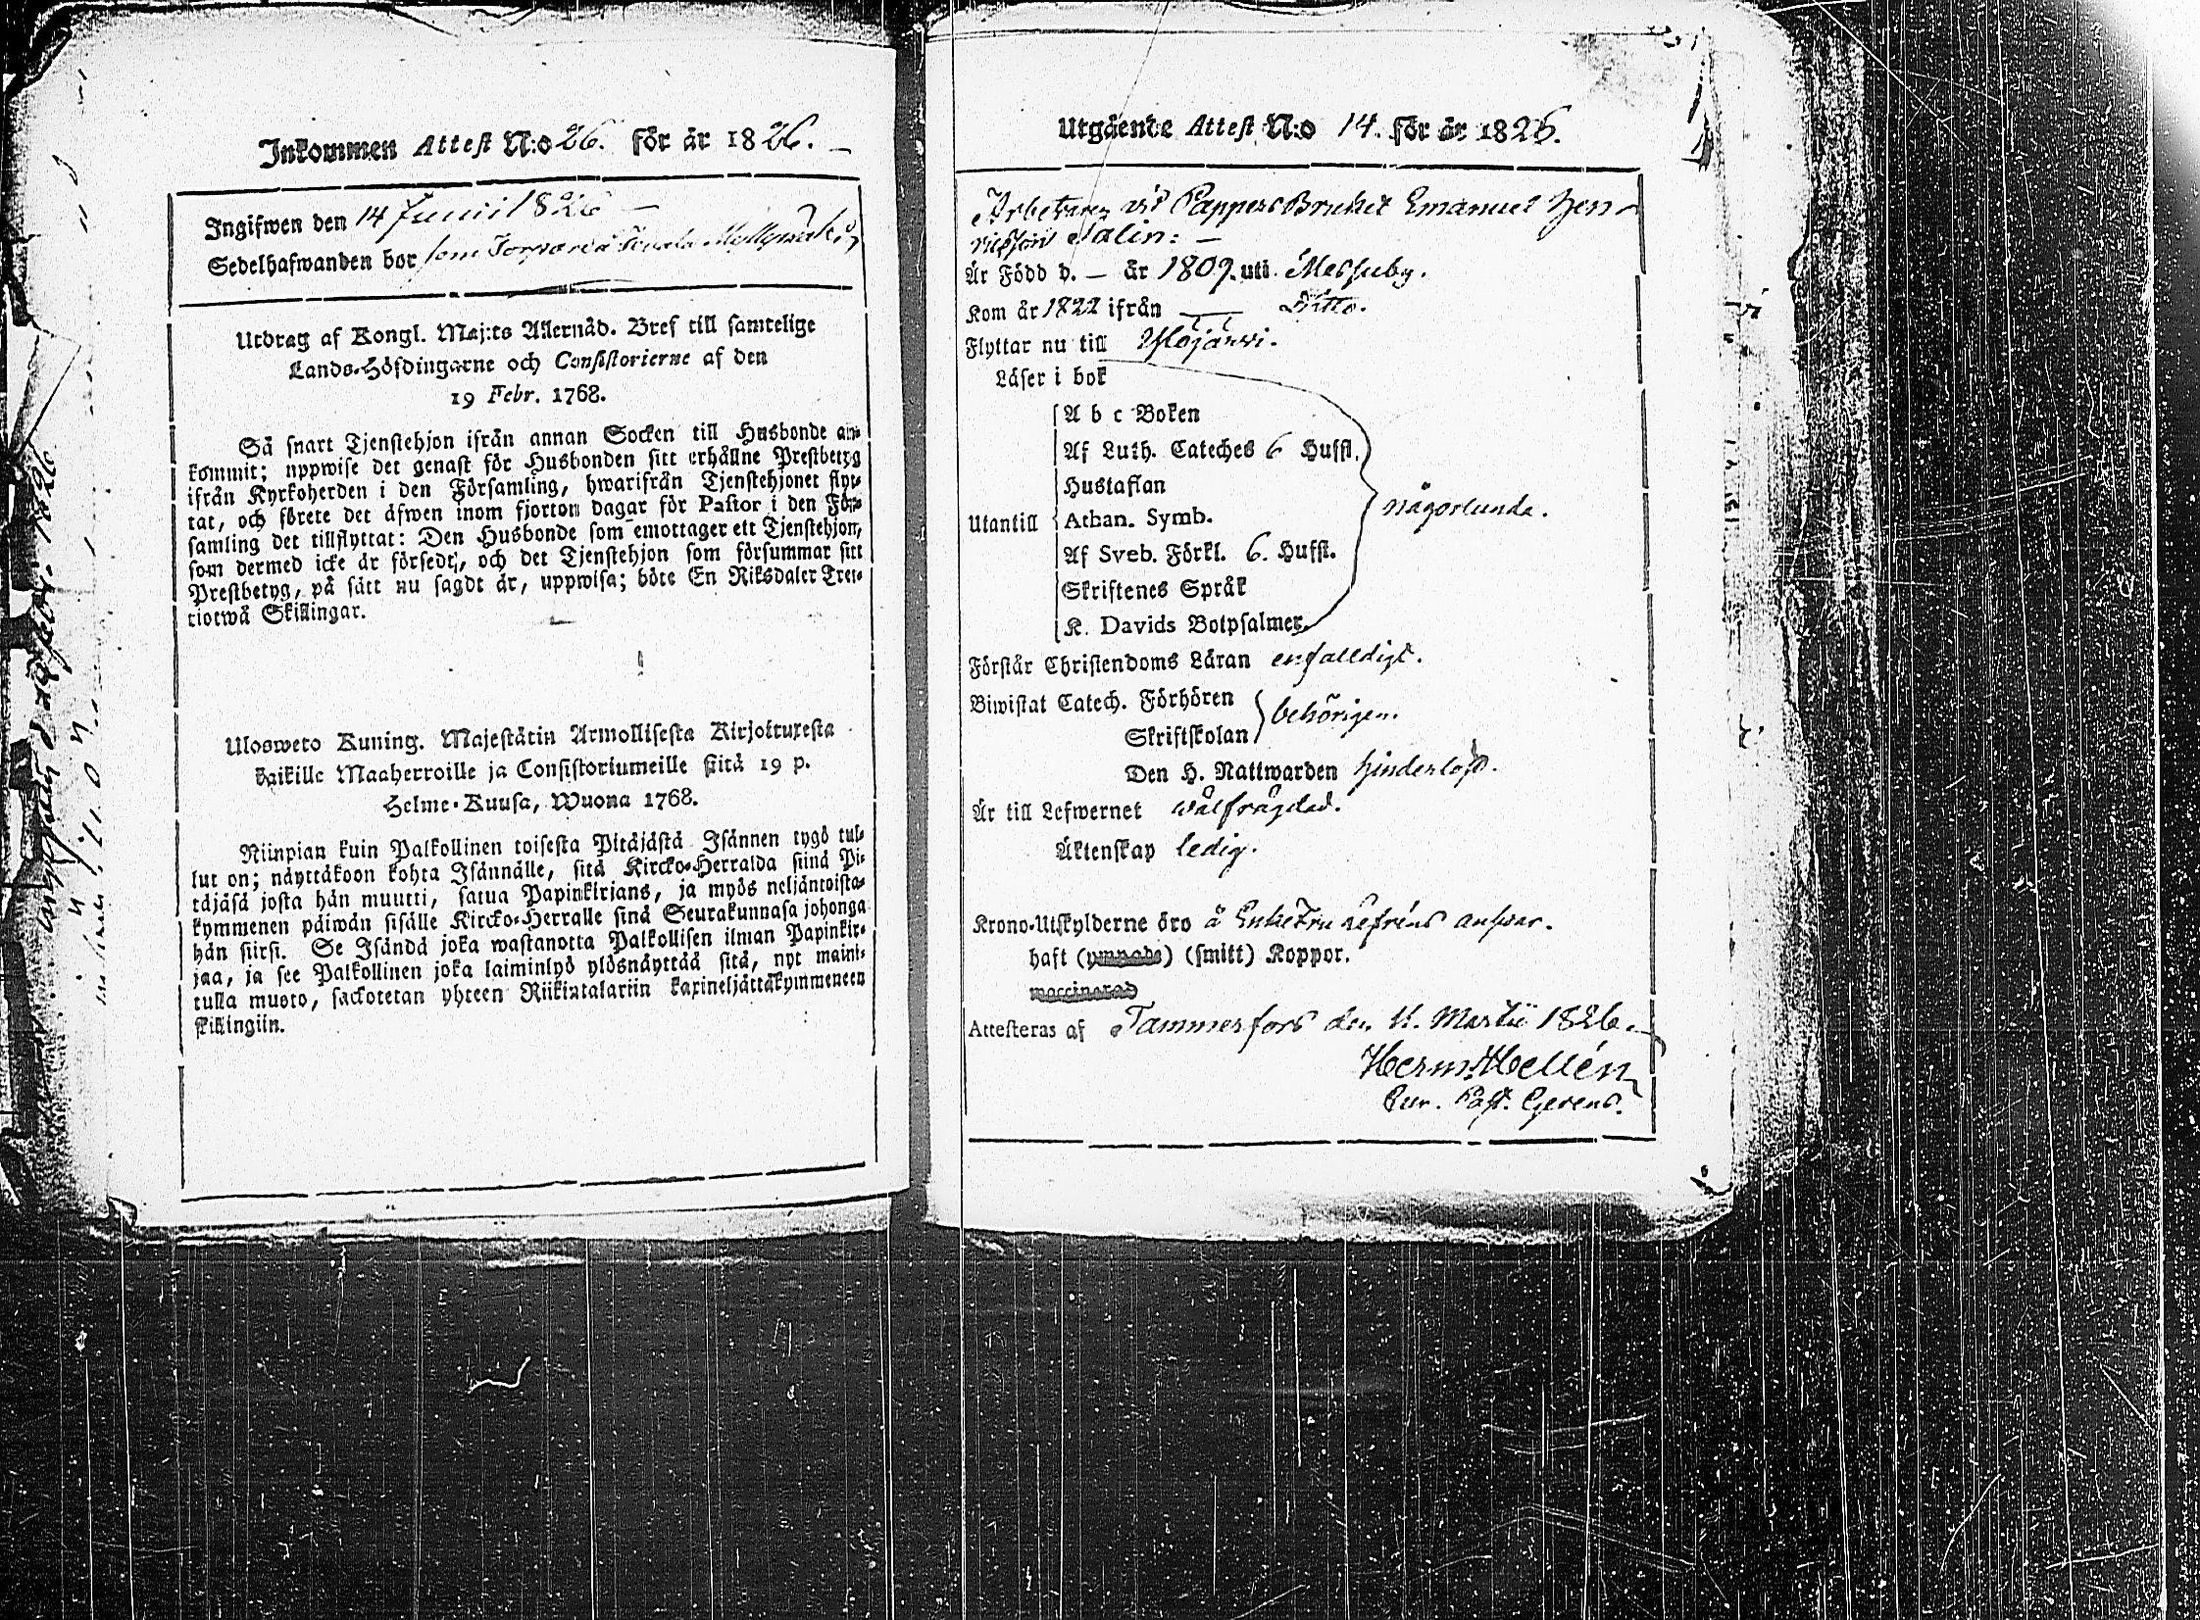 Inkommen Attest N:o 26. för år 1826.
Ingifwen den 14 Junii 1826
Sedelhafwanden bor som Torpare å Myllymäki
Utdrag af Kongl. Maj:ts Allernåd. Bref till samtelige
Lands-Höfdingarne och Consistorierne af den
19 Febr. 1768.
Så snart Tjenstehjon ifrån annan Socken till Husbonde an-
kommit; uppwise det genast för Husbonden sitt erhållne Prestbetyg
ifrån Kyrkoherden i den Församling, hwarifrån Tjenstehjonet flyt-
tat, och förete det äfwen inom fjorton dagar för Pastor i den För-
samling det tillflyttat: Den Husbonde som emottager ett Tjenstehjon,
som dermed icke är försedt, och det Tjenstehjon som försummar sitt
Prestbetyg, på sätt nu sagdt är, uppwisa; böte En Riksdaler Tret-
tiotwå Skillingar.
Ulosweto Kuning. Majestätin Armollisesta Kirjoituxesta
kaikille Maaherroille ja Consistoriumeille siitä 19 p.
Helme-Kuusa, Wuona 1768.
Niinpian kuin Palkollinen toisesta Pitäjästä Isännen tygö tul-
lut on; näyttäköön kohta Isännälle, sitä Kircko-Herralda siinä Pi-
täjäsä josta hän muutti, saatua Papinkirjans, ja myös neljäntoista-
kymmenen päiwän sisälle Kircko-Herralle sinä Seurakunnasa johonga
hän siirsi. Se Isändä joka wastanotta Palkollisen ilman Papinkir-
jaa, ja see Palkollinen joka laiminlyö ylösnäyttää sitä, nyt maini-
tulla muoto, sackotetan yhteen Riikintalariin kaxineljättäkymmeneen
skillingiin.
Utgående Attest N:o 14. för år 1826.
Arbetaren vid Pappers Bruket Emanuel Hen-
ricsson Salin: —
Är Född d. — år 1809. uti Messuby.
Kom år 1822 ifrån — Ditto.
Flyttar nu till Ylöjärvi.
Läser i bok
A b c Boken
Af Luth. Cateches 6 Hufst.
Hustaflan
Utantill Athan. Symb. någorlunda.
Af Sveb. Förkl. 6. Hufst.
Skriftenes Språk
K. Davids Botpsalmer
Förstår Christendoms Läran enfaldigt.
Biwistat Catech. Förhören
Skriftskolan behörigen.
Den H. Nattwarden hinderlöst.
Är till Lefwernet välfrägdad.
Äktenskap ledig.
Krono-Utskylderne äro å Enke Fru Lefréns answar.
haft (ympade) (smitt) Koppor.
waccinerad
Attesteras af Tammerfors den 11. Martii 1826.
Herm. Hellén
Cur. Past. Gerens.